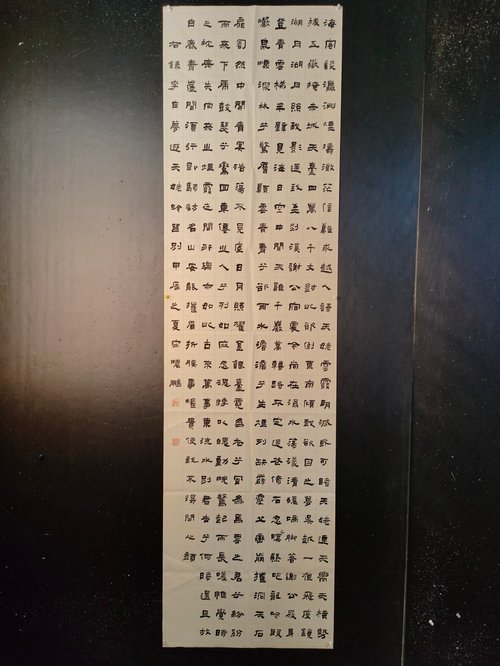 海客談瀛洲煙濤微茫信難求越人語天姥雲霞明滅或可睹天姥連天嚮天橫勢
拔五嶽掩赤城天臺四萬八千丈對此欲倒東南傾我欲因之夢吳越一夜飛度鏡
湖月湖月照我影送我至剡溪謝公宿處今尚在淥水蕩漾清猿啼腳著謝公屐身
登青雲梯半壁見海日空中聞天雞千巖萬轉路不定迷花倚石忽已暝熊咆龍吟殷
巖泉慄深林兮驚層巔雲青青兮欲雨水澹澹兮生煙列缺霹靂丘巒崩摧洞天石
扉訇然中開青冥浩蕩不見底日月照耀金銀臺霓為衣兮風為馬雲之君兮紛紛
而來下虎鼓瑟兮鸞回車僊之人兮列如麻忽魂悸以魄動怳驚起而長嗟惟覺時
之枕席失向來之煙霞世間行樂亦如此古來萬事東流水別君去兮何時還且放
白鹿青崖間須行即騎訪名山安能摧眉折腰事權貴使我不得開心顏
右錄李白夢遊天姥吟留別甲辰之夏宋耀鵬